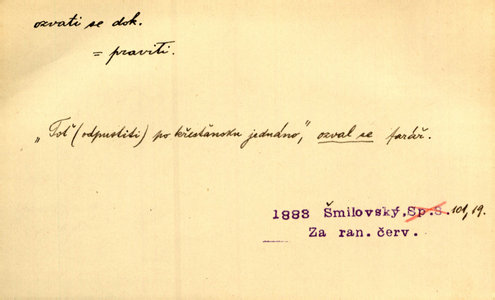 ozvati se dok.
= praviti.
„Toť (odpustiti) po křesťánsku jednáno,“ ozval se farář.
1883 Šmilovský, Sp. S. 101, 19.
Za ran. červ.